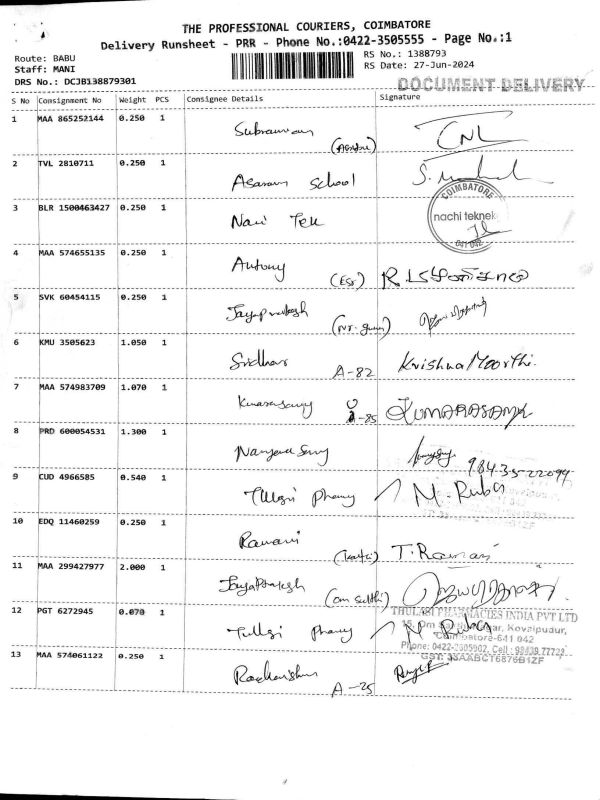 THE PROFESSIONAL COURIERS, COIMBATORE
Delivery Runsheet - PRR - Phone No.:0422-3505555 - Page No.:1
Route: BABU
Staff: MANI
DRS No.: DCJB138879301
RS No.: 1388793
RS Date: 27-Jun-2024
DOCUMENT DELIVERY
S No Consignment No Weight PCS Consignee Details Signature
1 MAA 865252144 0.250 1
CNL
2 TVL 2810711 0.250 1 Asaram School
COIMBATORE
3 BLR 1500463427 0.250 1 nachi teknek
641 042
4 MAA 574655135 0.250 1 Antony
5 SVK 60454115 0.250 1 Jayaprakash
6 KMU 3505623 1.050 1 Sridhar A-82 Krishna Moorthi.
7 MAA 574983709 1.070 1 Kumarasamy A-85 KUMARASAMY
8 PRD 600054531 1.300 1
98435-22099
9 CUD 4966585 0.540 1 Tulsi Phamy M. Ruba
10 EDQ 11460259 0.250 1 Ramani T. Ramani
11 MAA 299427977 2.000 1 Jayaprakash
12 PGT 6272945 0.070 1 Tullsi Phamy M Ruba
THULASI PHARMACIES INDIA PVT LTD
Nagar, Kovaipudur,
Coimbatore-641 042
Phone: 0422-2605902, Cell: 98439 77723
GST: 33AABCT6876B1ZF
13 MAA 574061122 0.250 1 A-25